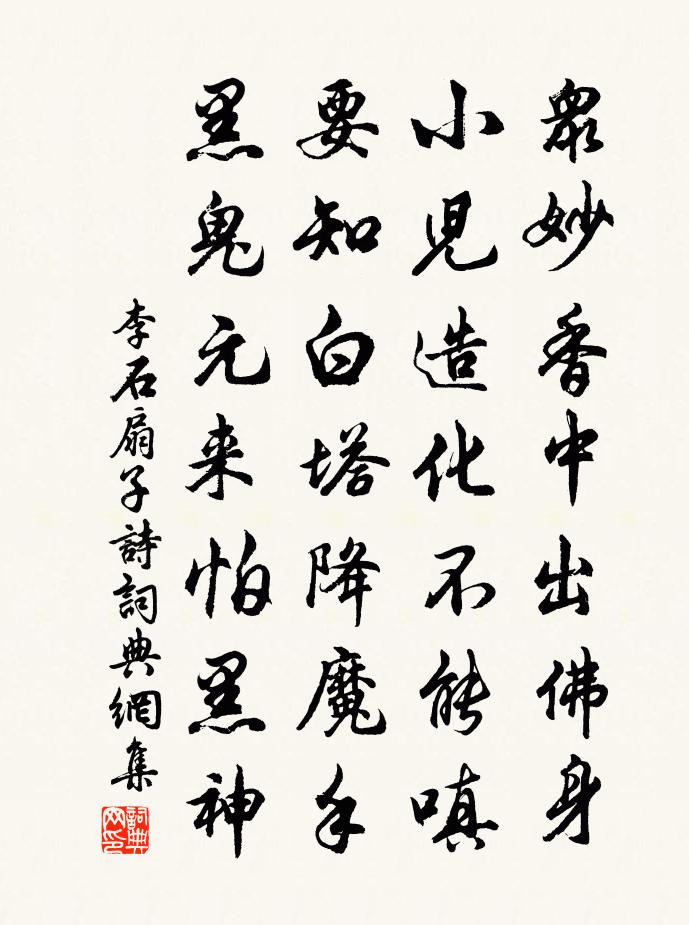 眾妙香中出佛身
小児造化不能嗔
要知白塔降魔手
黑鬼元来怕黑神
李石扇子詩詞典網集
詞典
网印